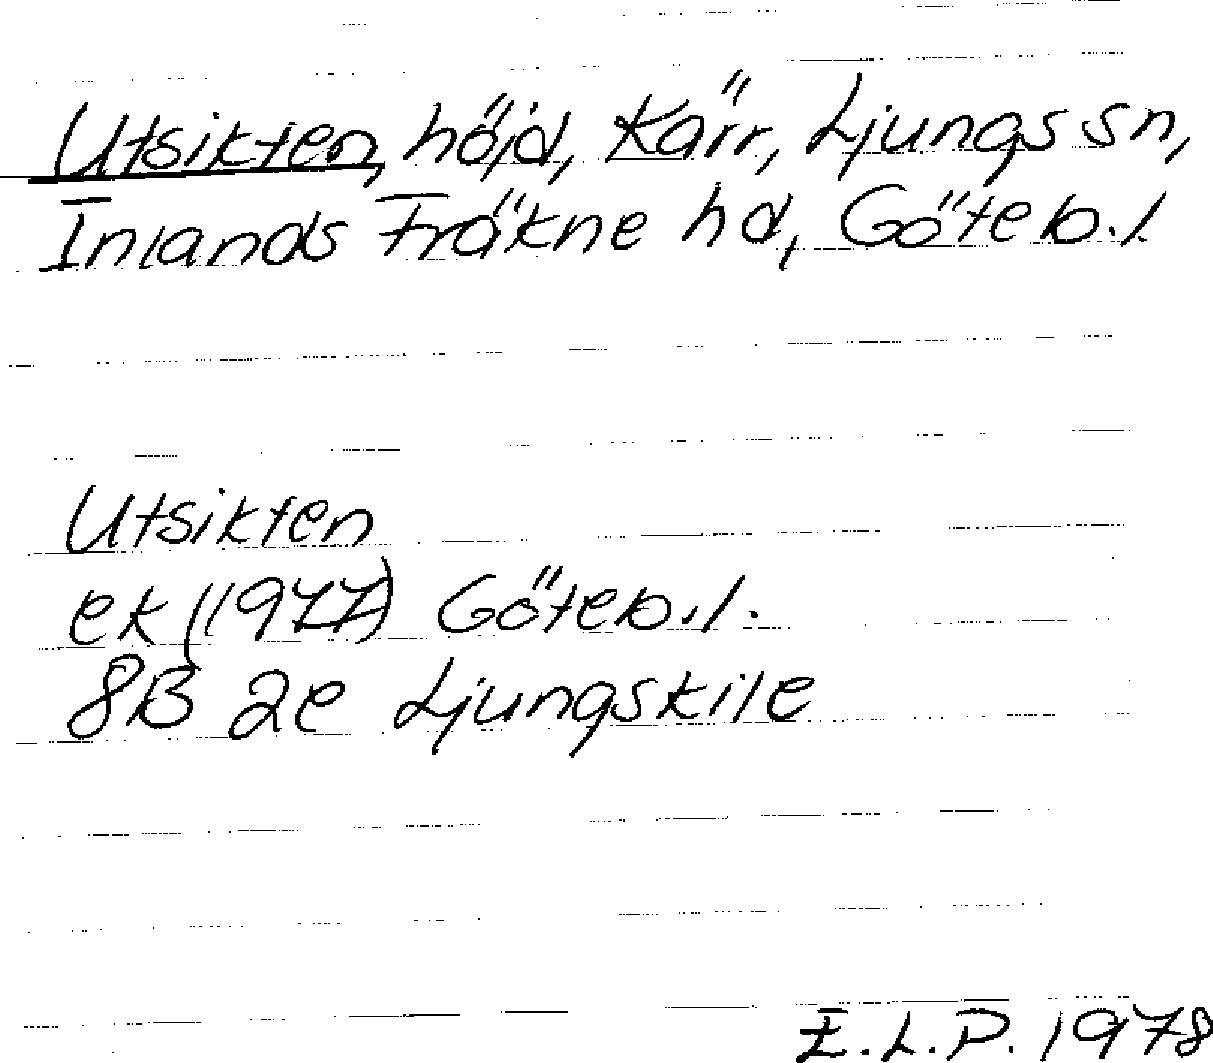 Utsikten, höjd, Kärr, Ljungs sn,
Inlands Fräkne hd, Göteb. l.
Utsikten
ek (1977) Göteb. l.
8B 2e Ljungskile
E.L.P. 1978